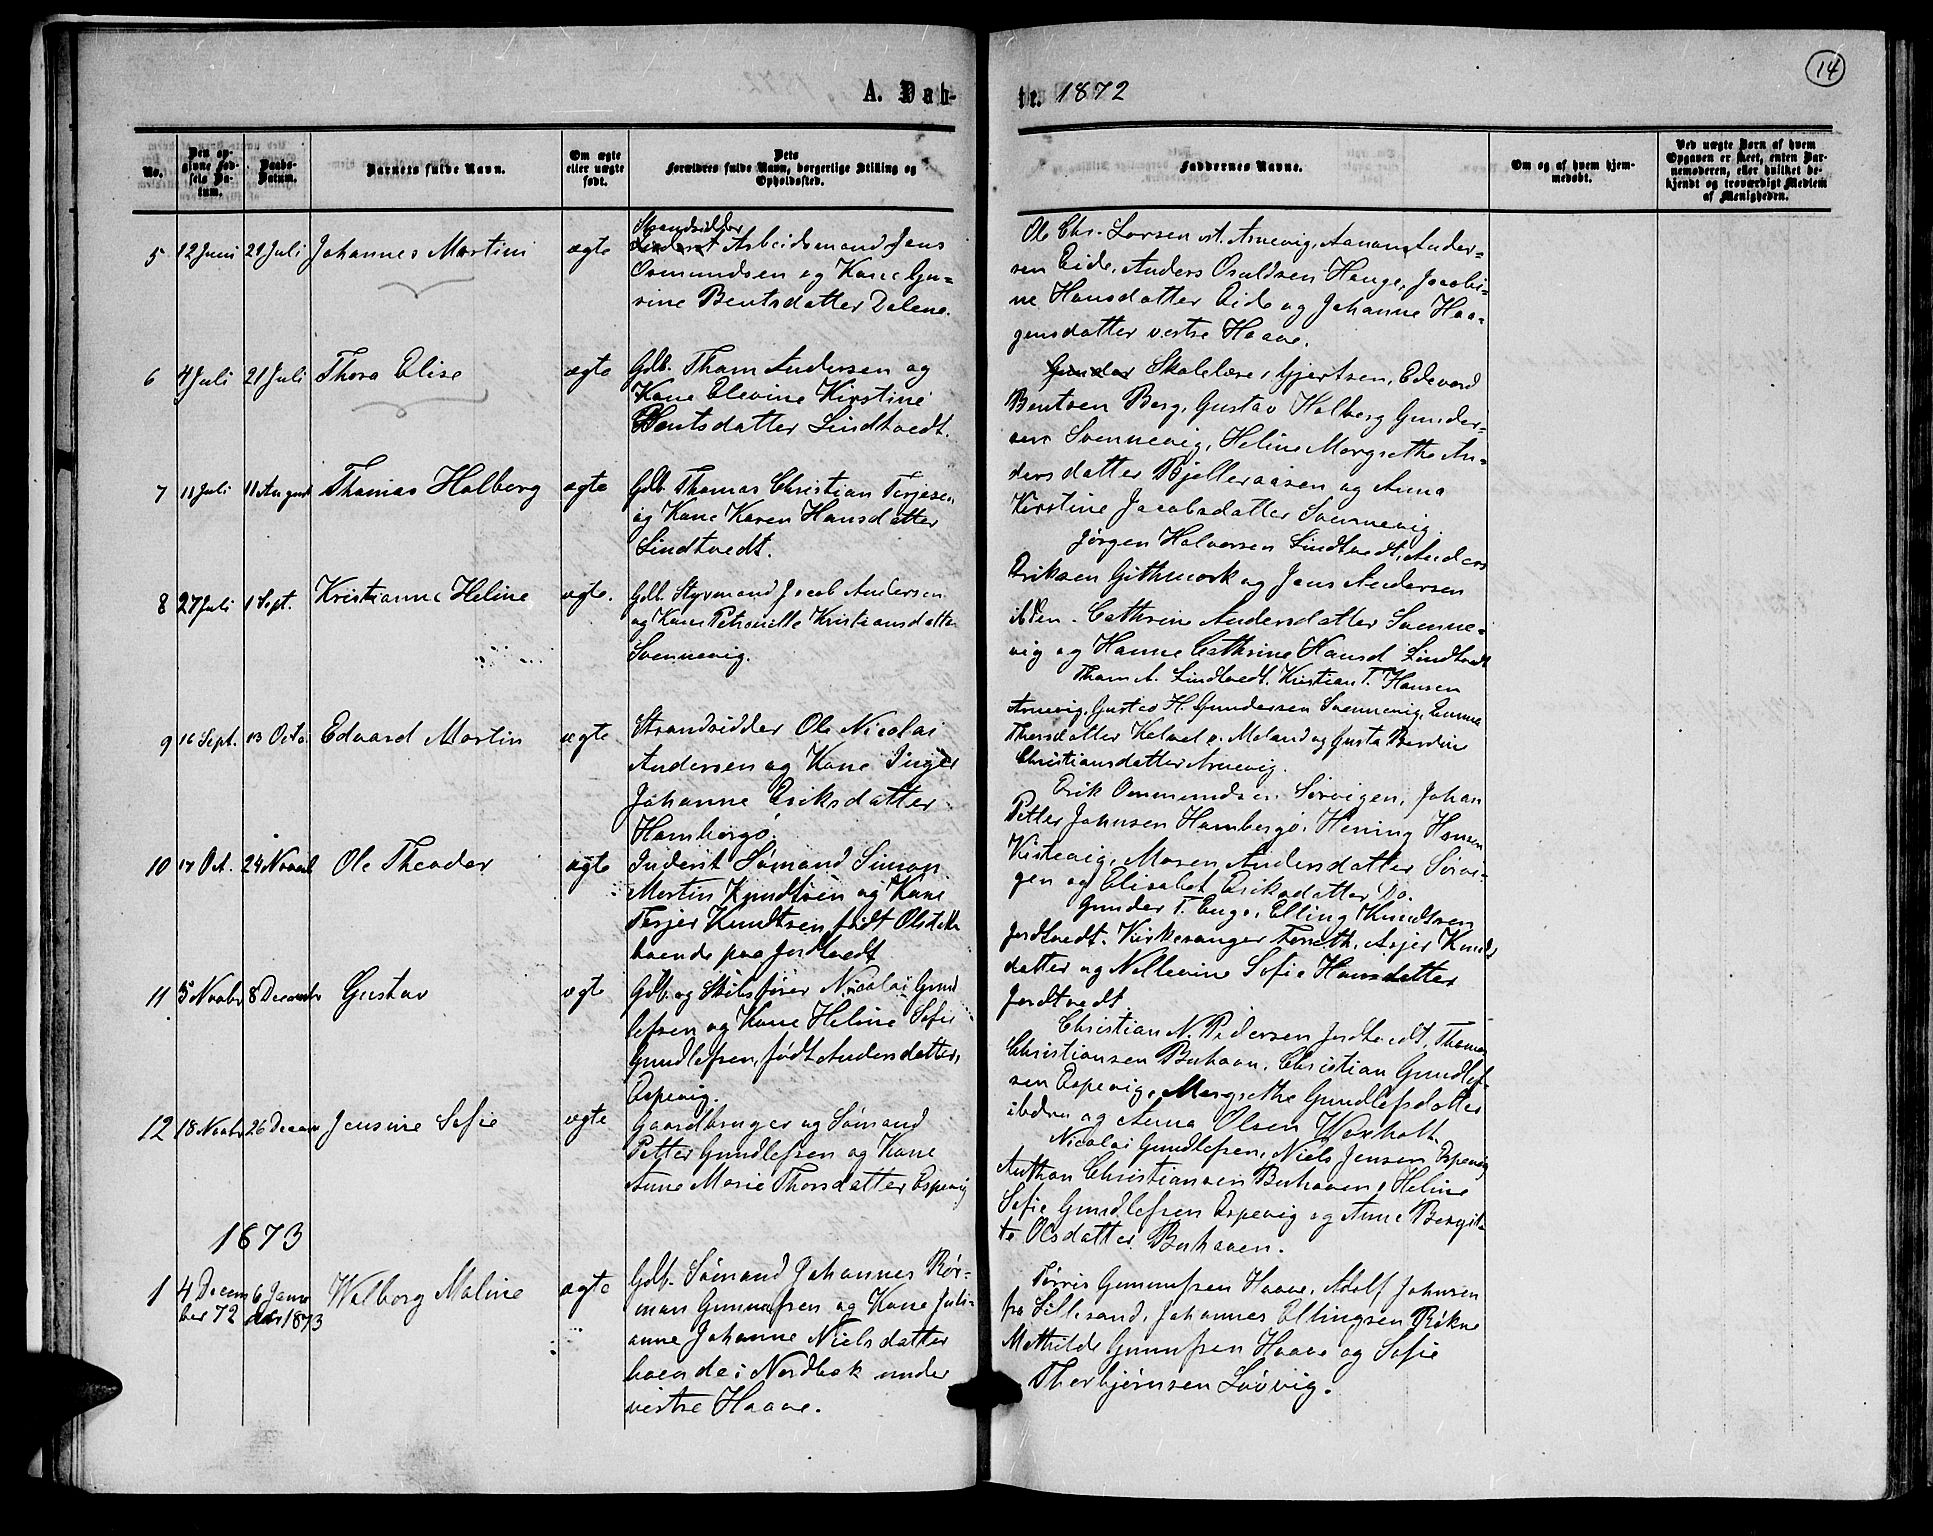 14
A. Dåb-
te. 1872
No.
Den op-
givne Fød-
sels Da-
tum.
Daabs-
Datum.
Barnets fulde Navn.
Om ægte
eller uægte
født.
Dets
Forældres fulde Navn, borgerlige Stilling og
Opholdssted.
Faddernes Navne.
Om og af hvem hjem-
medøbt.
Ved uægte Børn af hvem
Opgaven er skeet, enten Bar-
nemoderen, eller hvilket be-
kjendt og troværdigt Medlem
af Menigheden.
5 12 Juni 21 Juli Johannes Martin ægte
Strandsidder
Inderst Arbeidsmand Jens
Osmundsen og Kone Gu-
rine Bentsdatter Dalene.
Ole Chr. Larsen v. Arnevig, Aanon Ander-
sen Eide, Anders Osuldsen Hauge, Jacobi-
ne Hansdatter Eide og Johanne Haa-
gensdatter vestre Haave.
6 4 Juli 21 Juli Thora Elise ægte
Gdb. Thom Andersen og
Kone Elevine Kirstine
Bentsdatter Lindtvedt.
Gunder Skolelærer Gjertsen, Edevard
Bentsen Berg, Gustav Holberg Gunder-
sen Svennevig, Heline Margrethe An-
dersdatter Bjelleraasen og Anna
Kirstine Jacobsdatter Svennevig.
7 11 Juli 11 August Thomas Holberg ægte
Gdb. Thomas Christian Terjesen
og Kone Karen Hansdatter
Lindtvedt.
Jørgen Halvorsen Lindtvedt, Anders
Eriksen Githmark og Jens Andersen
ibden. Cathrine Andersdatter Svenne-
vig og Hanne Cathrine Hansd. Lindtvedt
8 27 Juli 1 Sept. Kristianne Heline ægte.
Gdb. Styrmand Jacob Andersen
og Kone Petronille Kristiansdatter
Svennevig.
Thom A. Lindtvedt, Kristian T. Hansen
Arnevig, Gustav H. Gundersen Svennevig, Emma
Thorsdatter Kalvel. v. Moland og Gusta Berdine
Christiansdatter Arnevig.
9 16 Sept. 13 Octo. Edvard Martin ægte
Strandsidder Ole Nicolai
Andersen og Kone Inger
Johanne Eriksdatter
Hambergö.
Erik Ommundsen Sørvigen, Johan
Petter Johnsen Hambergö, Hening Hansen
Kistevig, Maren Andersdatter Sørvi-
gen og Elisabet Eriksdatter Do.
10 17 Oct. 24 Novbr Ole Theodor ægte
Inderst Sømand Simon
Martin Knudtsen og Kone
Terjer Knudtsen, født Olsdatter
boende paa Jordtvedt
Gunder T. Enge, Elling Knudtsen
Jordtvedt. Kirkesanger Torseth, Asjer Knuds
datter og Nellevine Sofie Hansdatter
Jordtvedt
11 5 Novbr 8 Decembr Gustav ægte
Gdb. og Skibsfører Nicolai Gund
lefsen og Kone Heline Sofie
Gundlefsen, født Andersdatter,
Espevig.
Christian N. Pedersen Jordtvedt, Thomas
Christiansen Buhaven, Christian Gundlef-
sen Espevig, Margrethe Gundlefsdatter
ibden og Anna Olsen Waxholt
12 18 Novbr 26 Decem Jensine Sofie ægte
Gaardbruger og Sømand
Petter Gundlefsen og Kone
Anne Marie Thorsdatter Espevig
Nicolai Gundlefsen, Niels Jensen Espevig
Anthon Christiansen Buhaven, Heline
Sofie Gundlefsen Espevig og Anne Bergit-
te Olsdatter Buhaven.
1873
1 4 Decem
ber 72 6 Janu
ar 1873 Walborg Maline ægte
Gdb. Sømand Johannes Rør-
man Gunnufsen og Kone Juli-
anne Johanne Nielsdatter
boende i Nordbæk under
vestre Haave.
Tørris Gunnufsen Haave, Adolf Johnsen
fra Lillesand, Johannes Ellingsen Røkne
Mathilde Gunnufsen Haave og Sofie
Thorbjørnsen Løvvig.